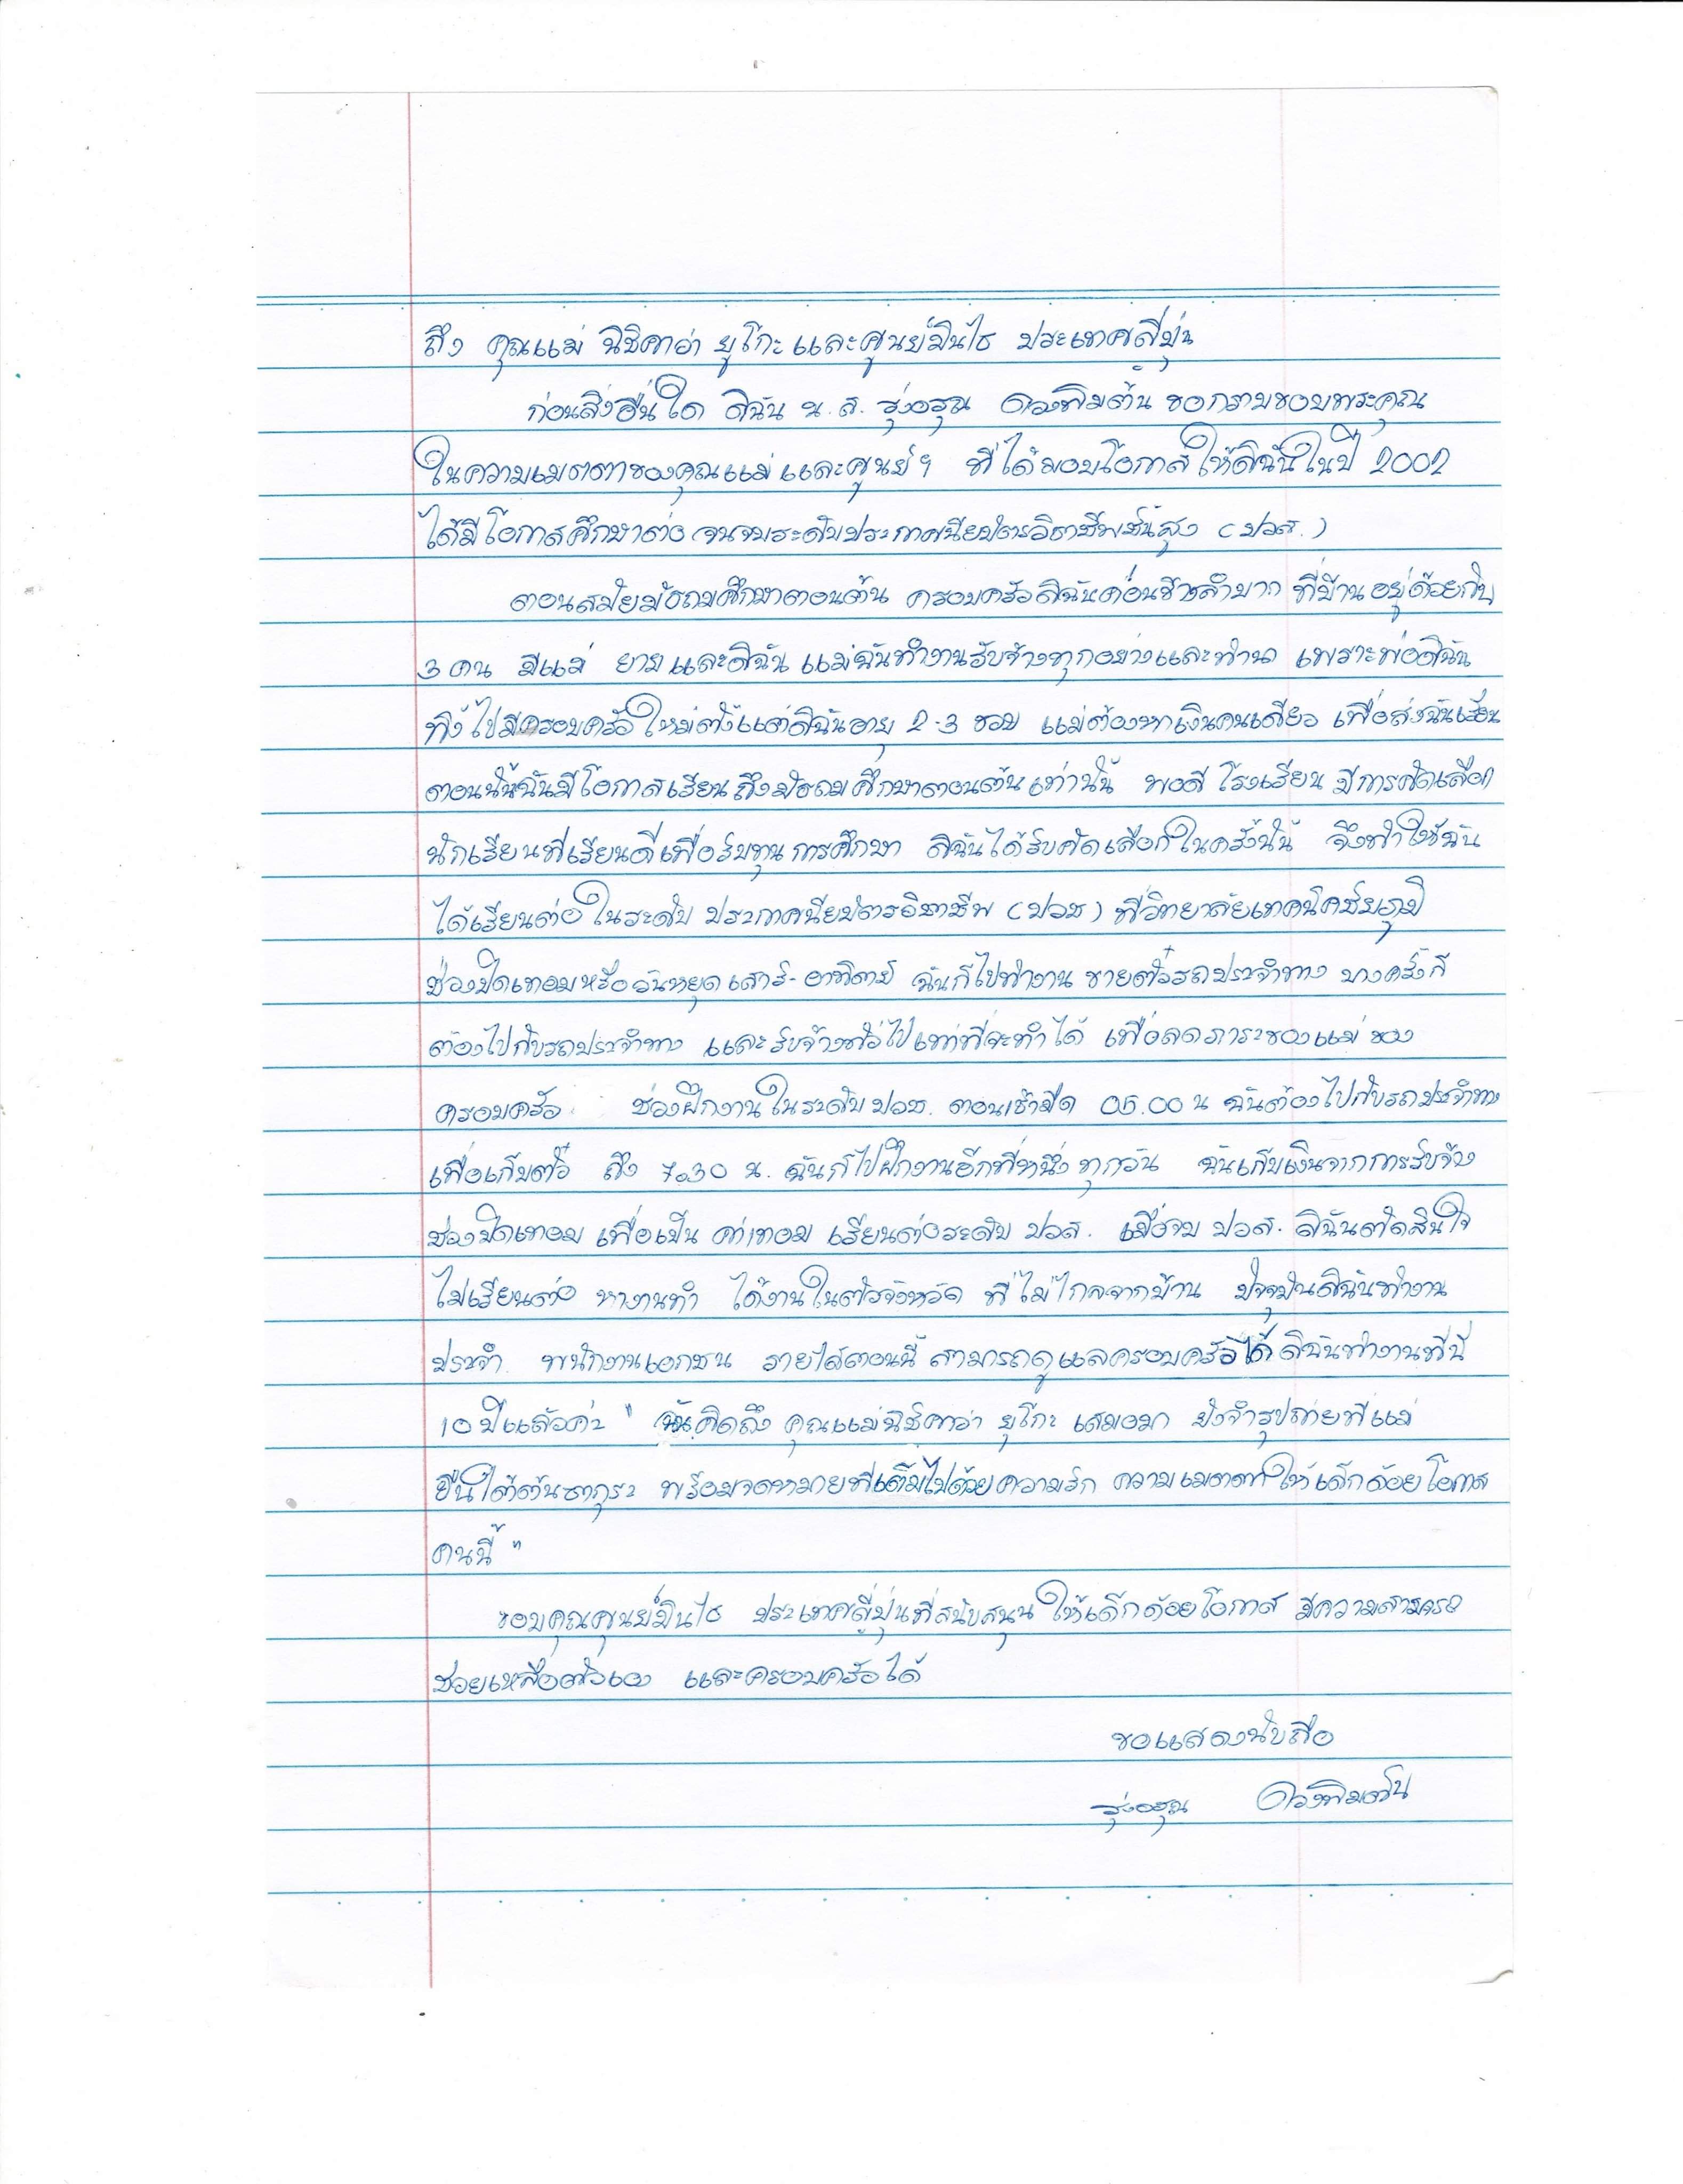 ถึง คุณแม่ นิชิคาว่า ยูโกะ และศูนย์มินไซ ประเทศญี่ปุ่น
ก่อนสิ่งอื่นใด ดิฉัน น.ส. รุ่งอรุณ ดวงพิมต้น ขอกราบขอบพระคุณ
ในความเมตตาของคุณแม่ และศูนย์ฯ ที่ได้มอบโอกาสให้ดิฉันในปี 2002
ได้มีโอกาสศึกษาต่อ จนจบระดับประกาศนียบัตรวิชาชีพชั้นสูง (ปวส.)
ตอนสมัยมัธยมศึกษาตอนต้น ครอบครัวดิฉันค่อนข้างลำบาก ที่บ้านอยู่ด้วยกัน
3 คน มีแม่ ยาย และดิฉัน แม่ฉันทำงานรับจ้างทุกอย่างและทำนา เพราะพ่อดิฉัน
ทิ้งไปมีครอบครัวใหม่ตั้งแต่ดิฉันอายุ 2-3 ขวบ แม่ต้องหาเงินคนเดียว เพื่อส่งฉันเรียน
ตอนนั้นฉันมีโอกาสเรียนถึงมัธยมศึกษาตอนต้นเท่านั้น พอดีโรงเรียน มีการคัดเลือก
นักเรียนที่เรียนดีเพื่อรับทุนการศึกษา ดิฉันได้รับคัดเลือกในครั้งนั้น จึงทำให้ฉัน
ได้เรียนต่อในระดับ ประกาศนียบัตรวิชาชีพ (ปวช) ที่วิทยาลัยเทคนิคชัยภูมิ
ช่วงปิดเทอมหรือวันหยุดเสาร์-อาทิตย์ ฉันก็ไปทำงาน ขายตั๋วรถประจำทาง บางครั้งก็
ต้องไปกับรถประจำทาง และรับจ้างทั่วไปเท่าที่จะทำได้ เพื่อลดภาระของแม่ ของ
ครอบครัว ช่วงฝึกงานในระดับ ปวช. ตอนเช้ามืด 05.00 น ฉันต้องไปกับรถประจำทาง
เพื่อเก็บตั๋ว ถึง 7.30 น. ฉันก็ไปฝึกงานอีกที่หนึ่ง ทุกวัน ฉันเก็บเงินจากการรับจ้าง
ช่วงปิดเทอม เพื่อเป็น ค่าเทอม เรียนต่อระดับ ปวส. เมื่อจบ ปวส. ดิฉันตัดสินใจ
ไม่เรียนต่อ หางานทำ ได้งานในตัวจังหวัด ที่ไม่ไกลจากบ้าน ปัจจุบันดิฉันทำงาน
ประจำ พนักงานเอกชน รายได้ตอนนี้ สามารถดูแลครอบครัวได้ ดิฉันทำงานที่นี่
10 ปีแล้วค่ะ " ฉันคิดถึง คุณแม่นิชิคาว่า ยูโกะ เสมอมา ยังจำรูปถ่ายที่แม่
ยืนใต้ต้นซากุระ พร้อมจดหมายที่เต็มไปด้วยความรัก ความเมตตาให้เด็กด้อยโอกาส
คนนี้ "
ขอบคุณศูนย์มินไซ ประเทศญี่ปุ่นที่สนับสนุนให้เด็กด้อยโอกาส มีความสามารถ
ช่วยเหลือตัวเอง และครอบครัวได้
ขอแสดงนับถือ
รุ่งอรุณ ดวงพิมต้น